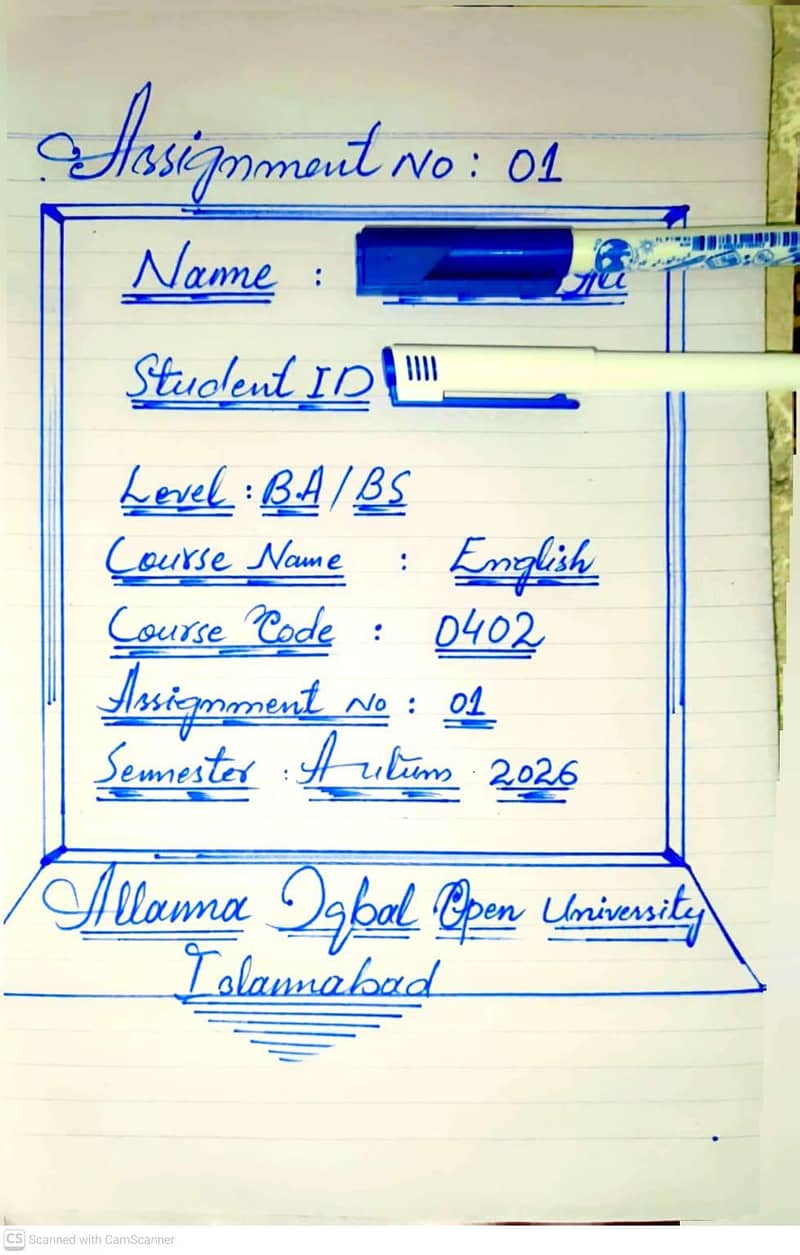 Assignment No: 01
Name :
Student ID
Level : B.A / BS
Course Name : English
Course Code : 0402
Assignment No : 01
Semester : Autum 2026
Allama Iqbal Open University
Islamabad
CS Scanned with CamScanner